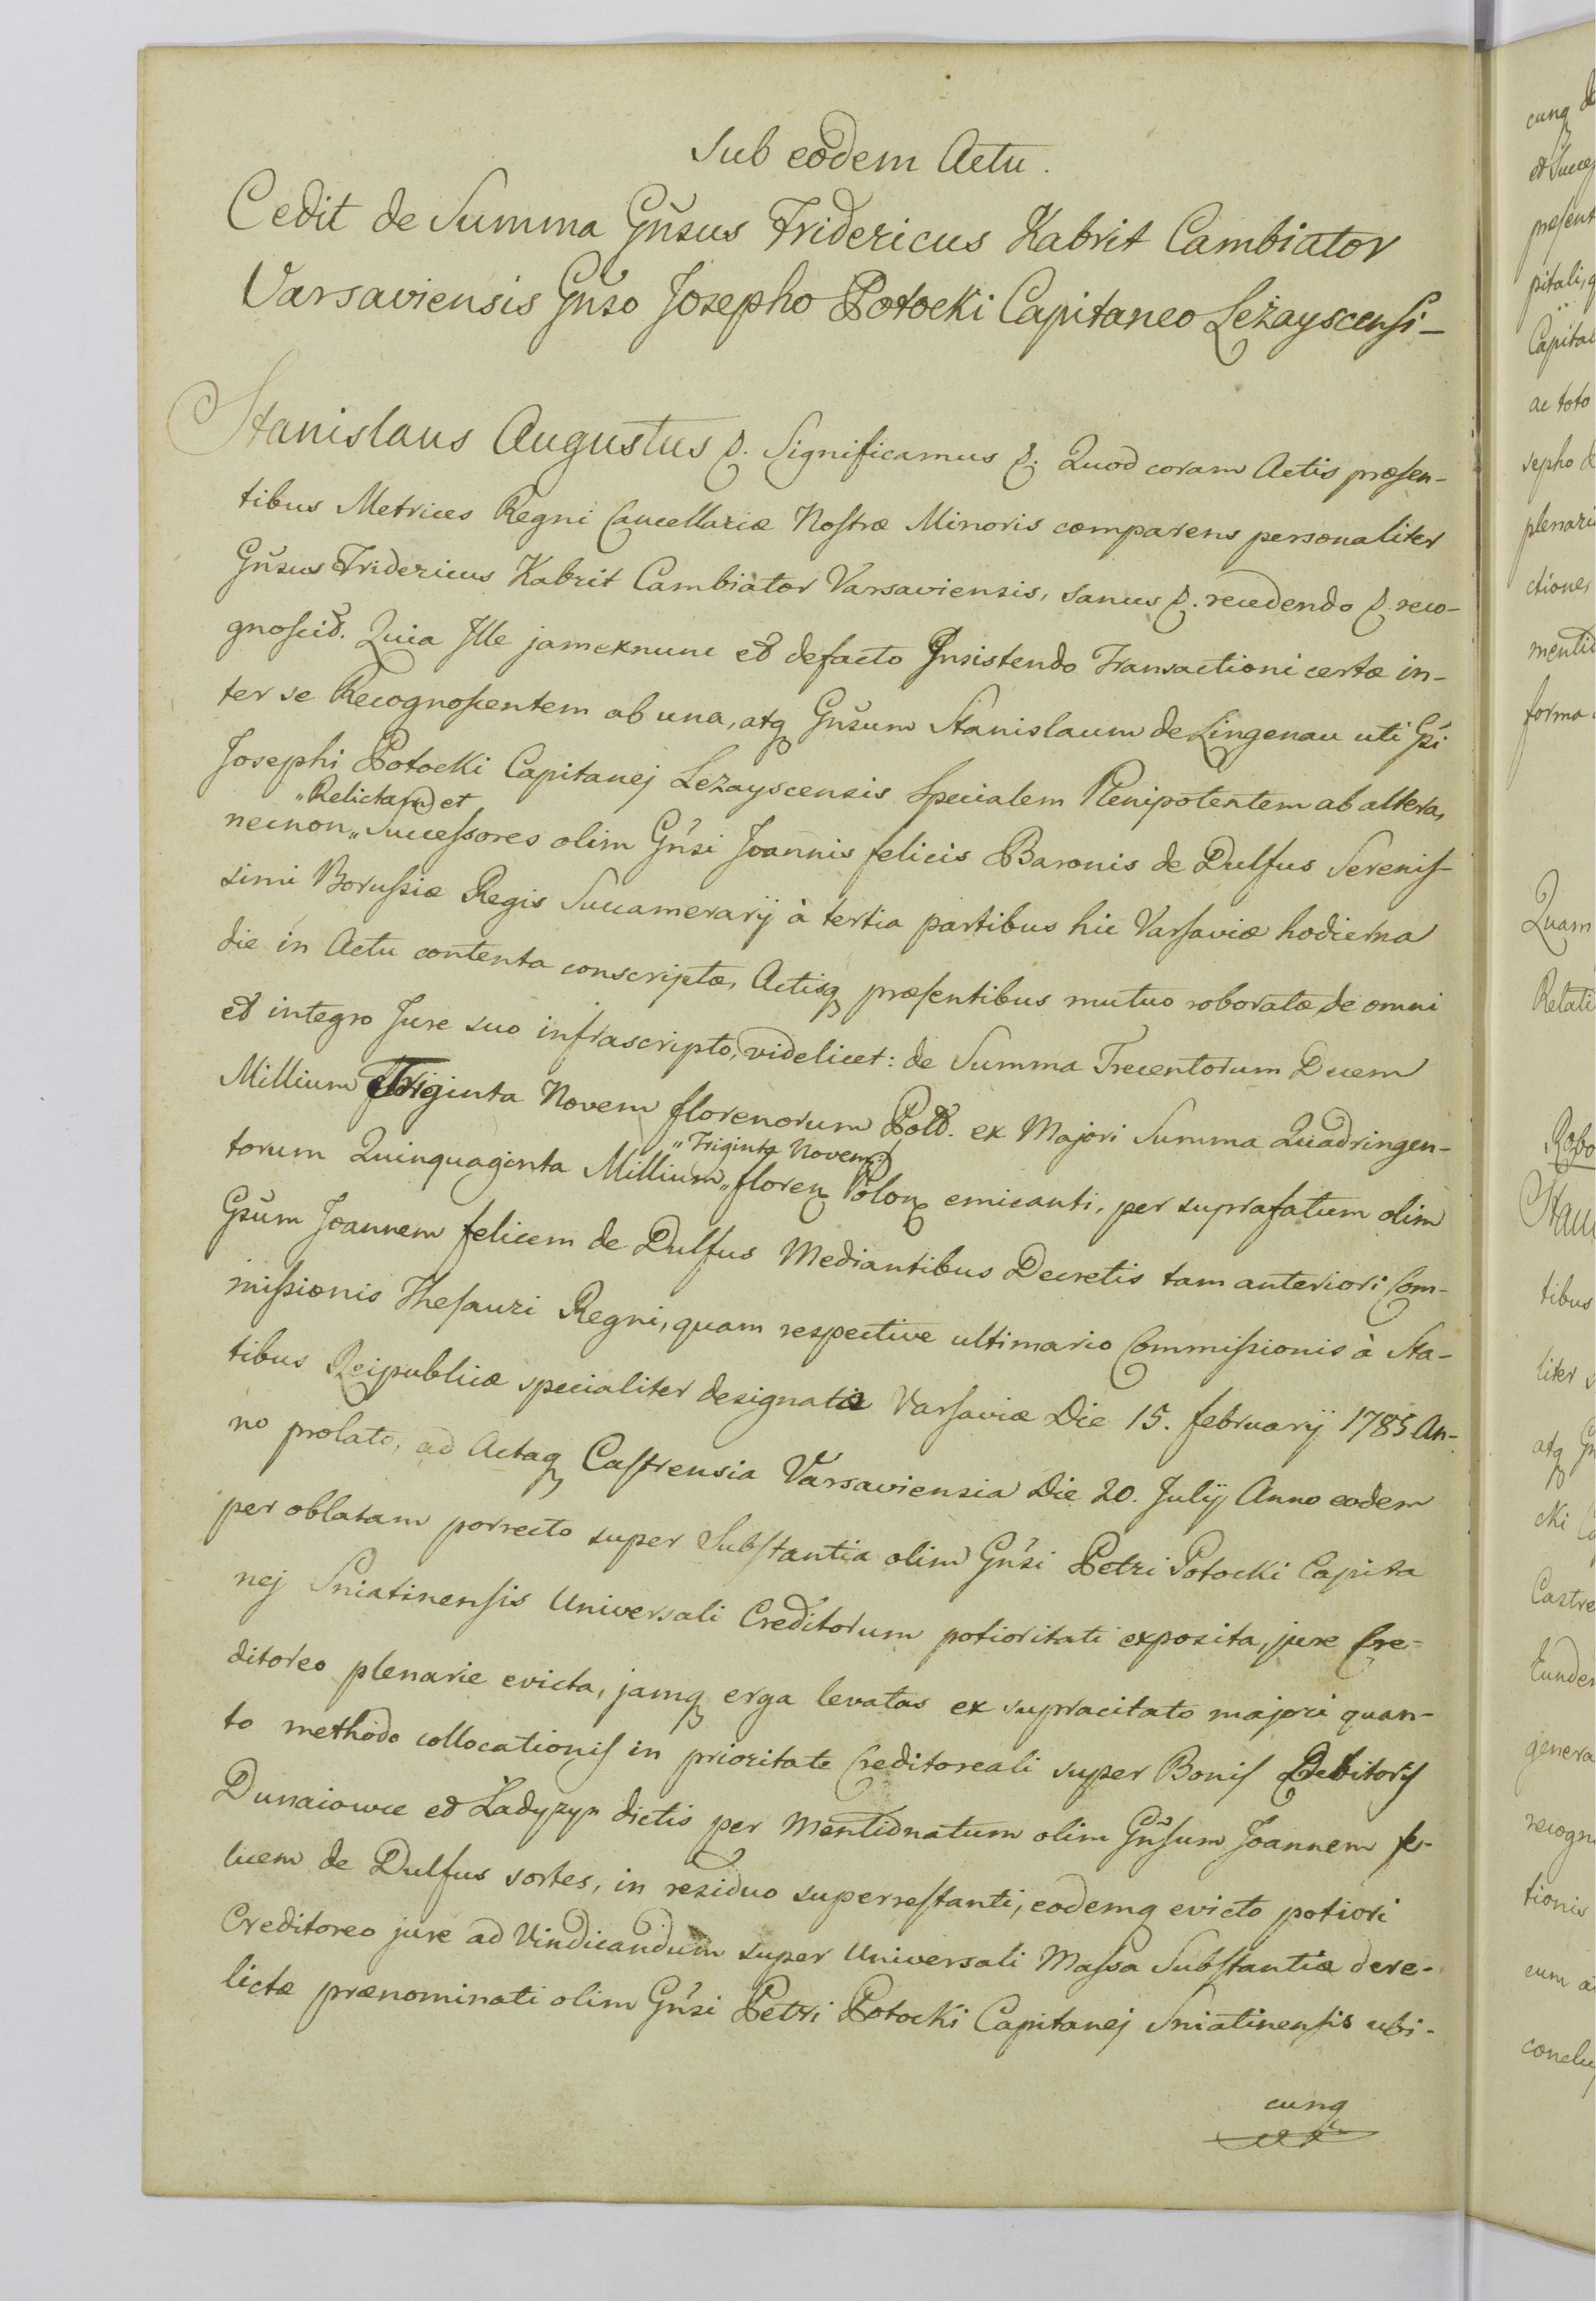 Sub eodem Actu.
Cedit de Summa Gñsus Fridericus Kabrit Cambiator
Varsaviensis Gñso Josepho Potocki Capitaneo Leżayscensi_
Stanislaus Augustus &. Significamus &. Quod coram Actis præsen-
tibus Metrices Regni Cancellariæ Nostræ Minoris comparens personaliter
Gñsus Fridericus Kabrit Cambiator Varsaviensis, sanus &. recedendo &. reco-
gnoscit. Quia Ille jam exnunc et defacto Insistendo Transactioni certæ in-
ter se Recognoscentem ab una, atq Gñsum Stanislaum de Lingenau uti Gsi
Josephi Potocki Capitanej Leżayscensis Specialem Plenipotentem ab altera,
"Relictam et
necnon" Successores olim Gñsi Joannis felicis Baronis de Dulfus Serenis-
simi Borussiæ Regis Succamerarij à tertia partibus hic Varsaviæ hodierna
die in Actu contenta conscriptæ, Actisq præsentibus mutuo roboratæ, de omni
et integro Jure suo infrascripto, videlicet: de Summa Trecentorum Decem
Millium Triginta Novem florenorum Poll. ex Majori Summa Quadringen-
"Triginta Novem
torum Quinquaginta Millium" floren Polon emicanti, per suprafatum olim
Gsum Joannem felicem de Dulfus Mediantibus Decretis tam anteriori Com-
missionis Thesauri Regni, quam respective ultimario Commissionis à Sta-
tibus Reipublicæ specialiter designatæ Varsaviæ Die 15. februarij 1785 An-
no prolato, ad Actaq Castrensia Varsaviensia Die 20. Julij Anno eodem
per oblatam porrecto super Substantia olim Gñsi Petri Potocki Capita
nej Sniatinensis Universali Creditorum potioritati exposita, jure Cre-
ditoreo plenarie evicta, jamq erga levatas ex supracitato majori quan-
to methodo collocationis in prioritate Creditoreali super Bonis Debitoris
Dunaiowce et Ładyzyn dictis per Mentionatum olim Gñsum Joannem fe-
licem de Dulfus sortes, in residuo superrestanti, eodemq evicto potiori
Creditoreo jure ad Vindicandum super Universali Massa Substantiæ dere-
lictæ prænominati olim Gñsi Petri Potocki Capitanej Sniatinensis ubi-
cunq